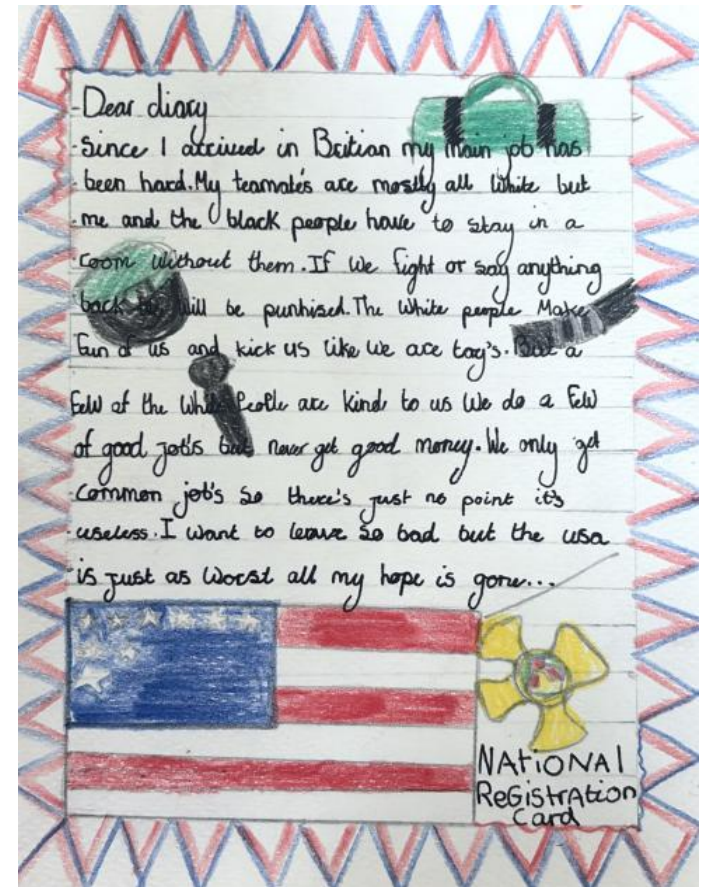 Dear diary
Since I arrived in Britian my main job has
been hard. My teamate's are mostly all white but
me and the black people have to stay in a
room without them. If we fight or say anything
back we will be punhised. The white people Make
fun of us and kick us like we are toy's. But a
few of the White People are kind to us We do a few
of good job's but never get good money. We only get
common job's so there's just no point it's
useless. I want to leave so bad but the usa
is just as worst all my hope is gone...
NATiONAl
ReGistrAtion
Card